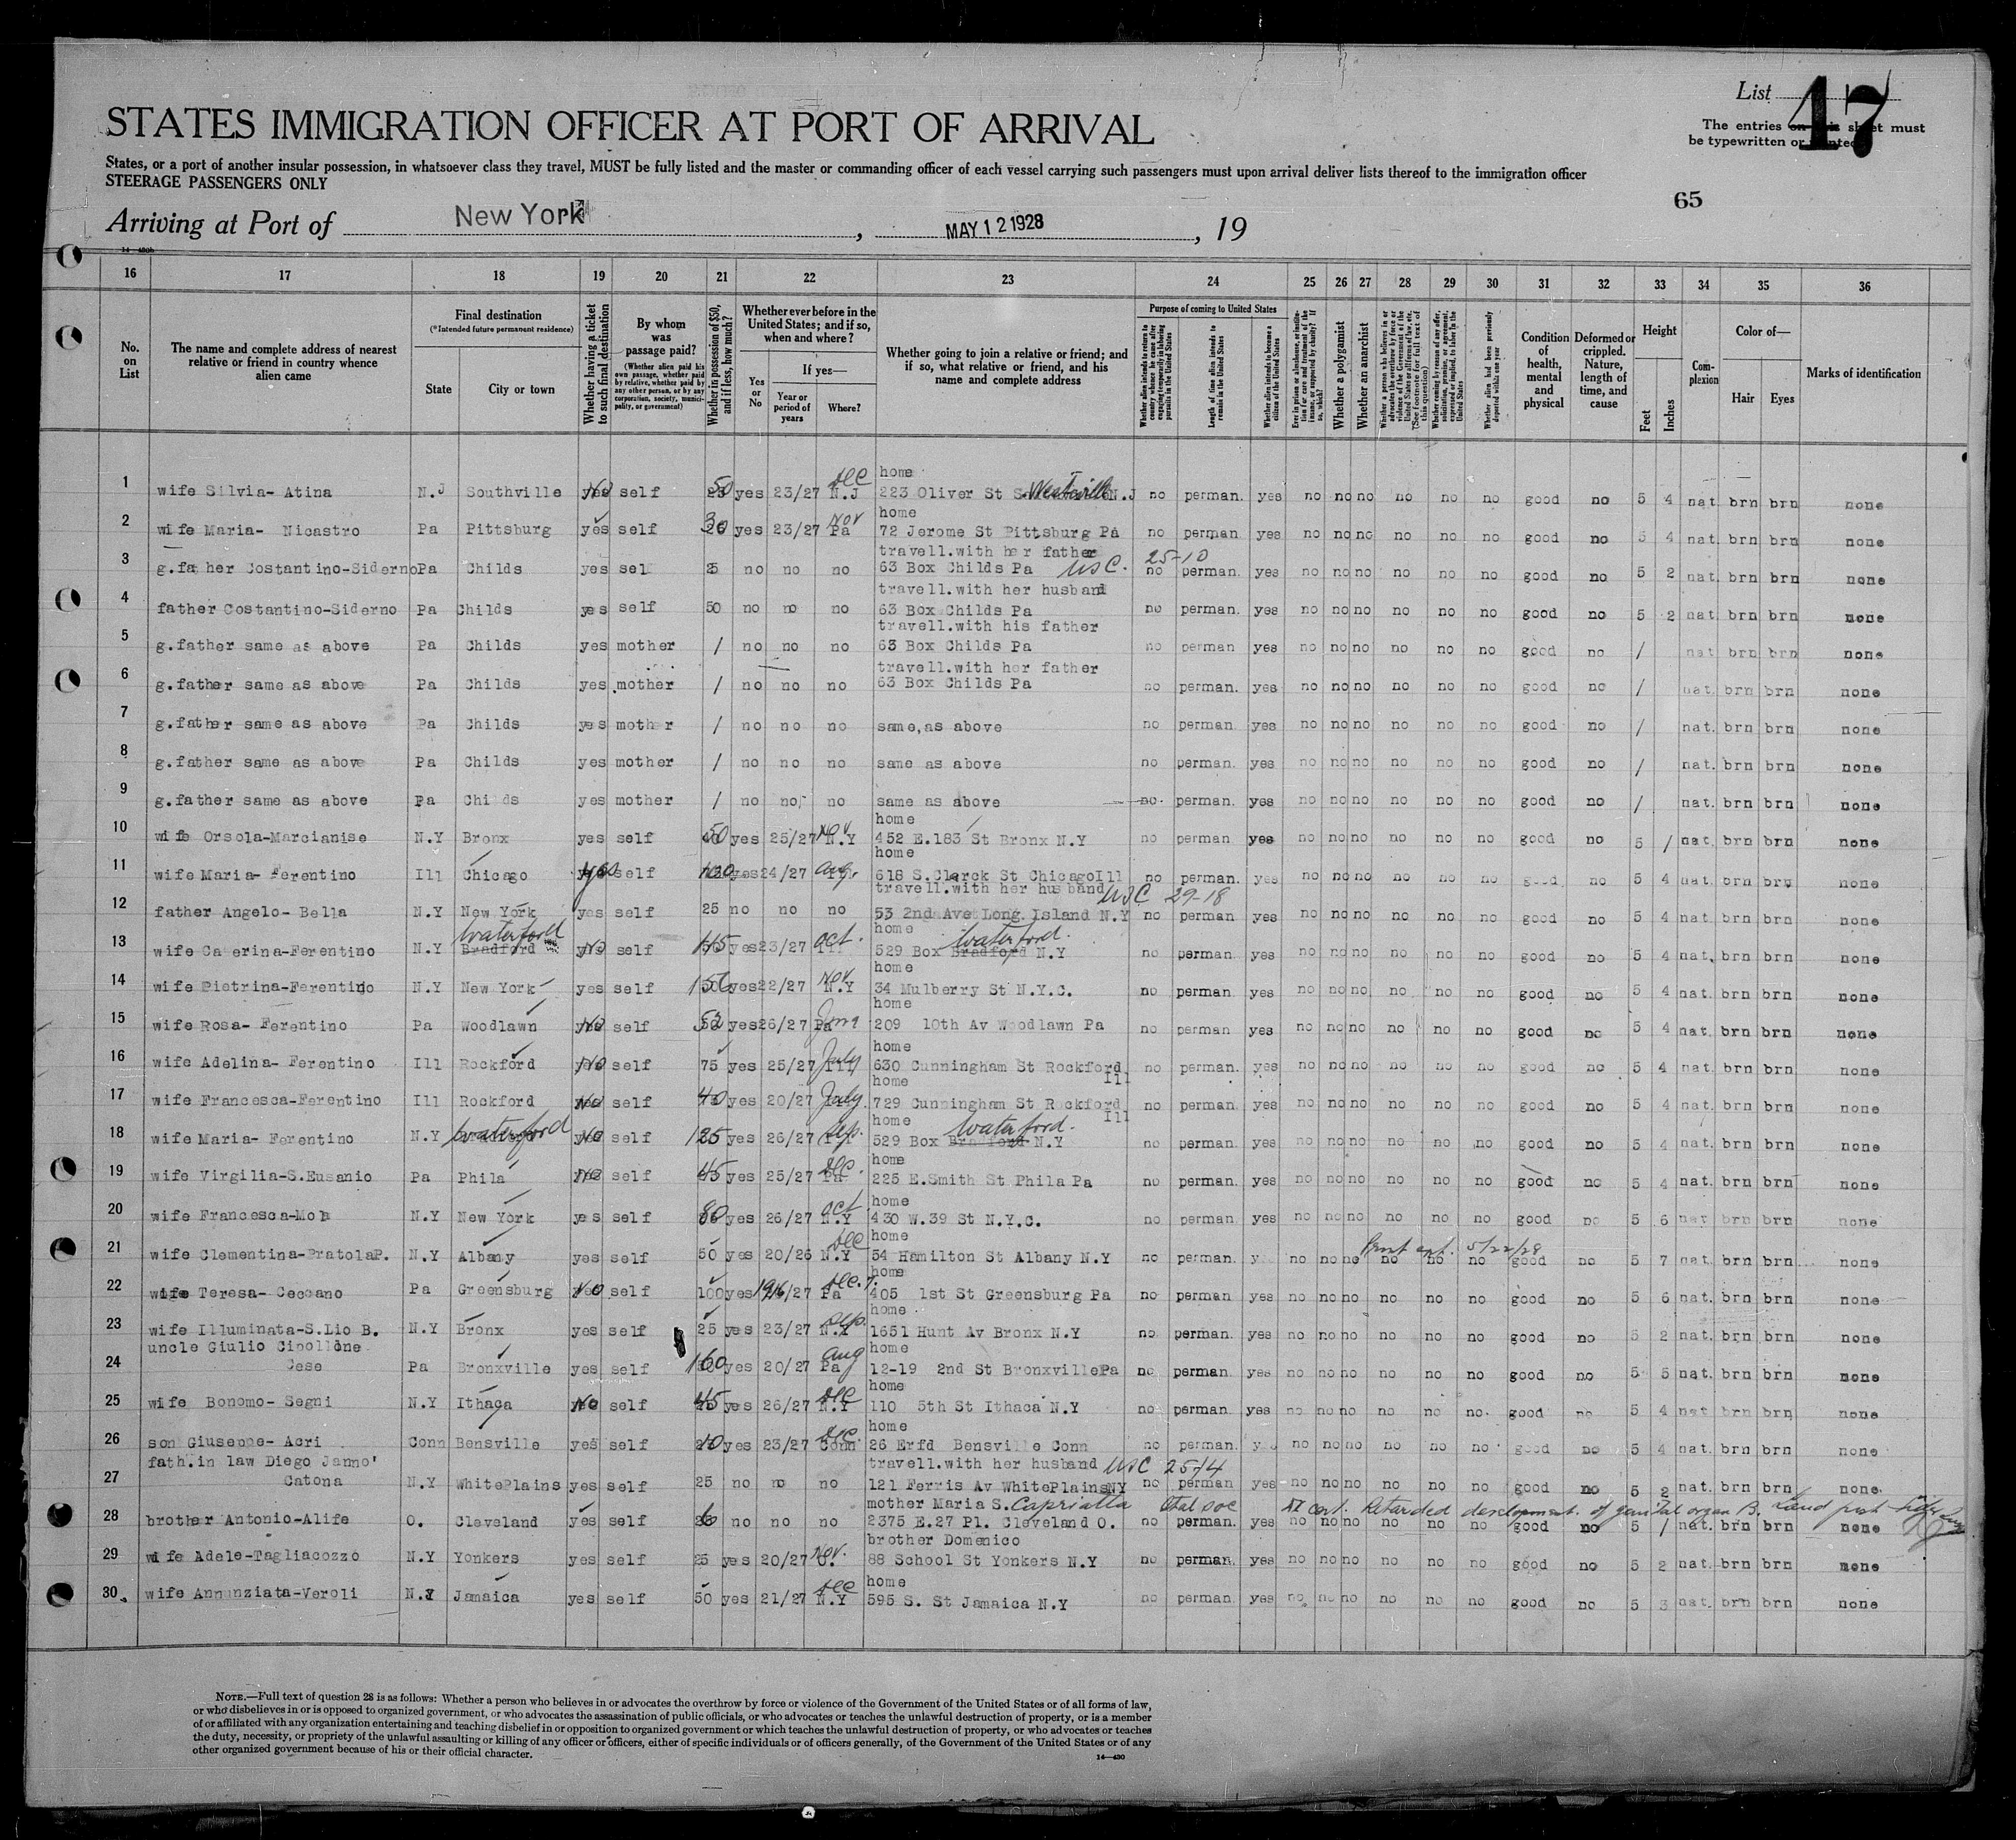 List 47
STATES IMMIGRATION OFFICER AT PORT OF ARRIVAL
The entries on this sheet must
be typewritten or printed
States, or a port of another insular possession, in whatsoever class they travel, MUST be fully listed and the master or commanding officer of each vessel carrying such passengers must upon arrival deliver lists thereof to the immigration officer
STEERAGE PASSENGERS ONLY
65
Arriving at Port of New York, MAY 12 1928, 19
16 17 18 19 20 21 22 23 24 25 26 27 28 29 30 31 32 33 34 35 36
No. on List
The name and complete address of nearest relative or friend in country whence alien came
Final destination
(*Intended future permanent residence)
State
City or town
Whether having a ticket to such final destination
By whom was passage paid?
(Whether alien paid his own passage, whether paid by relative, whether paid by any other person, or by any corporation, society, municipality, or government)
Whether in possession of $50, and if less, how much?
Whether ever before in the United States; and if so, when and where?
Yes or No
If yes—
Year or period of years
Where?
Whether going to join a relative or friend; and if so, what relative or friend, and his name and complete address
Purpose of coming to United States
Whether alien intends to return to country whence he came after engaging temporarily in laboring pursuits in the United States
Length of time alien intends to remain in the United States
Whether alien intends to become a citizen of the United States
Ever in prison or almshouse, or institution for care and treatment of the insane, or supported by charity? If so, which?
Whether a polygamist
Whether an anarchist
Whether a person who believes in or advocates the overthrow by force or violence of the Government of the United States or all forms of law, etc. (See footnote for full text of this question)
Whether coming by reason of any offer, solicitation, promise, or agreement, expressed or implied, to labor in the United States
Whether alien had been previously deported within one year
Condition of health, mental and physical
Deformed or crippled. Nature, length of time, and cause
Height
Feet
Inches
Complexion
Color of—
Hair
Eyes
Marks of identification
home Dec
1 wife Silvia- Atina N.J Southville No self 50 yes 23/27 N.J 223 Oliver St Westville N.J no perman. yes no no no no no no good no 5 4 nat. brn brn none
home Nov
2 wife Maria- Nicastro Pa Pittsburg yes self 30 yes 23/27 Pa 72 Jerome St Pittsburg Pa no perman. yes no no no no no no good no 5 4 nat. brn brn none
travell.with her father 25-10
3 g.father Costantino-Siderno Pa Childs yes sel 25 no no no 63 Box Childs Pa USC. no perman. yes no no no no no no good no 5 2 nat. brn brn none
travell.with her husband
4 father Costantino-Siderno Pa Childs yes self 50 no no no 63 Box Childs Pa no perman. yes no no no no no no good no 5 2 nat. brn brn none
travell.with his father
5 g.father same as above Pa Childs yes mother / no no no 63 Box Childs Pa no perman yes no no no no no no good no / nat brn brn none
travell.with her father
6 g.father same as above Pa Childs yes mother / no no no 63 Box Childs Pa no perman. yes no no no no no no good no / nat. brn brn none
7 g.father same as above Pa Childs yes mother / no no no same,as above no perman. yes no no no no no no good no / nat. brn brn none
8 g.father same as above Pa Childs yes mother / no no no same as above no perman. yes no no no no no no good no / nat. brn brn none
9 g.father same as above Pa Chi ds yes mother / no no no same as above no. perman. yes no no no no no no good no / nat. brn brn none
home
10 wife Orsola-Marcianise N.Y Bronx yes self 50 yes 25/27 Nov N.Y 452 E.183 St Bronx N.Y no perman yes no no no no no no good no 5 / nat. brn brn none
home
11 wife Maria- Ferentino Ill Chicago yes self yes 24/27 Aug. 618 S.Clarck St Chicago Ill no perman. yes no no no no no no good no 5 4 nat. brn brn none
travell.with her husband USC 29-18
12 father Angelo- Bella N.Y New York yes self 25 no no no 53 2nd Ave Long Island N.Y no perman yes no no no no no no good no 5 4 nat. brn brn none
Waterford home Waterford.
13 wife Caterina-Ferentino N.Y Bradford No self yes 23/27 Oct. 529 Box Bradford N.Y no perman. yes no no no no no no good no 5 4 nat. brn brn none
home
14 wife Pietrina-Ferentino N.Y New York yes self 150 yes 22/27 Nov N.Y 34 Mulberry St N.Y.C. no perman. yes no no no no no no good no 5 4 nat. brn brn none
home
15 wife Rosa- Ferentino Pa Woodlawn No self 52 yes 26/27 Pa 209 10th Av Woodlawn Pa no perman yes no no no no no no good no 5 4 nat. brn brn none
home
16 wife Adelina- Ferentino Ill Rockford No self 75 yes 25/27 July 630 Cunningham St Rockford Ill no perman. yes no no no no no no good no 5 4 nat. brn brn none
home
17 wife Francesca-Ferentino Ill Rockford No self 40 yes 20/27 July 729 Cunningham St Rockford Ill no perman. yes no no no no no no good no 5 4 nat. brn brn none
home Waterford.
18 wife Maria- Ferentino N.Y Waterford No self 125 yes 26/27 Sep. 529 Box Bradford N.Y no perman. yes no no no no no no good no 5 4 nat. brn brn none
home
19 wife Virgilia-S.Eusanio Pa Phila No self 45 yes 25/27 Dec. Pa 225 E.Smith St Phila Pa no perman. yes no no no no no no good no 5 4 nat. brn brn none
home
20 wife Francesca-Mola N.Y New York yes self 80 yes 26/27 Oct N.Y 430 W.39 St N.Y.C. no perman. yes no no no no no no good no 5 6 nat brn brn none
home 5/22/28
21 wife Clementina-PratolaP. N.Y Albany yes self 50 yes 20/26 Dec N.Y 54 Hamilton St Albany N.Y no perman. y no no no no no no good no 5 7 nat. brn brn none
home
22 wife Teresa- Ceccano Pa Greensburg No self 100 yes 1916/27 Dec. Pa 405 1st St Greensburg Pa no perman. yes no no no no no no good no 5 6 nat. brn brn none
home
23 wife Illuminata-S.Lio B. N.Y Bronx yes self 25 yes 23/27 Sep. N.Y 1651 Hunt Av Bronx N.Y no perman. yes no no no no no no good no 5 2 nat. brn brn none
uncle Giulio Cipollone home
24 Cese Pa Bronxville yes self 160 yes 20/27 Aug Pa 12-19 2nd St Bronxville Pa no perman. yes no no no no no no good no 5 5 nat. brn brn none
home
25 wife Bonomo- Segni N.Y Ithaca No self 45 yes 26/27 Dec N.Y 110 5th St Ithaca N.Y no perman. yes no no no no no no. good no 5 4 nat brn brn none
home
26 son Giuseppe- Acri Conn Bensville yes self yes 23/27 Dec Conn 26 Erfd Bensville Conn no perman. no no no no no no good no 5 4 nat. brn brn none
fath.in law Diego Janno' travell.with her husband USC 25-14
27 Catona N.Y WhitePlains yes self 25 no no no 121 Ferris Av WhitePlains NY no perman yes no no no no no no good no 5 2 nat. brn brn none
mother Maria S. Capriatta cert. Retarded development. of genital organ B.
28 brother Antonio-Alife O. Cleveland yes self no no no 2375 E.27 Pl. Cleveland O. no perman. yes no no no no no no good no 5 / nat. brn brn none
brother Domenico
29 wife Adele-Tagliacozzo N.Y Yonkers yes self 25 yes 20/27 Nov. 88 School St Yonkers N.Y no perman. yes no no no no no no good no 5 2 nat. brn brn none
home
30. wife Annunziata-Veroli N.Y Jamaica yes self 50 yes 21/27 Dec N.Y 595 S. St Jamaica N.Y no perman. yes no no no no no no good no 5 3 nat. brn brn none
NOTE.—Full text of question 28 is as follows: Whether a person who believes in or advocates the overthrow by force or violence of the Government of the United States or of all forms of law,
or who disbelieves in or is opposed to organized government, or who advocates the assassination of public officials, or who advocates or teaches the unlawful destruction of property, or is a member
of or affiliated with any organization entertaining and teaching disbelief in or opposition to organized government or which teaches the unlawful destruction of property, or who advocates or teaches
the duty, necessity, or propriety of the unlawful assaulting or killing of any officer or officers, either of specific individuals or of officers generally, of the Government of the United States or of any
other organized government because of his or their official character.
14—430